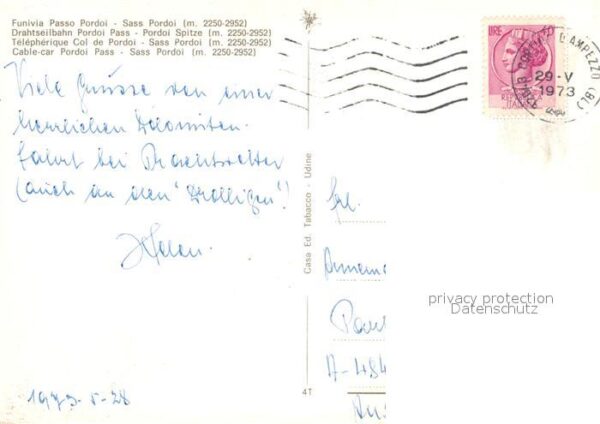 Funivia Passo Pordoi - Sass Pordoi (m. 2250-2952)
Drahtseilbahn Pordoi Pass - Pordoi Spitze (m. 2250-2952)
Téléphérique Col de Pordoi - Sass Pordoi (m. 2250-2952)
Cable-car Pordoi Pass - Sass Pordoi (m. 2250-2952)
Viele Grüsse von einer
herrlichen Dolomiten-
fahrt bei Prachtwetter
(auch an den "Drolligen")
Helen.
1973-5-28
Casa Ed. Tabacco - Udine
4T
LIRE
CORTINA D'AMPEZZO (BL)
29-V
1973
Frl.
Annema
A-484
privacy protection
Datenschutz